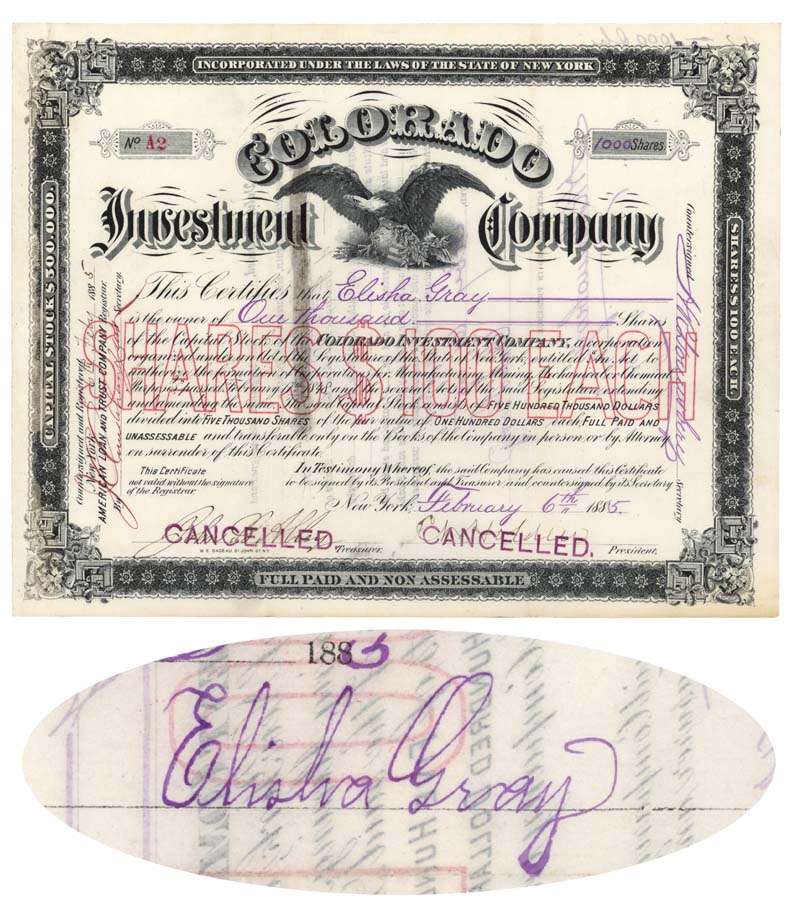 INCORPORATED UNDER THE LAWS OF THE STATE OF NEW YORK
CAPITAL STOCK $500,000.
SHARES $100 EACH.
No A2
1000 Shares
COLORADO
Investment Company
This Certifies that Elisha Gray
is the owner of One thousand. Shares
of the Capital Stock of the COLORADO INVESTMENT COMPANY, a corporation
organized under an Act of the Legislature of the State of New York, entitled "An Act to
authorize the formation of Corporations for Manufacturing, Mining, Mechanical or Chemical
Purposes" passed February 17, 1848 and the several acts of the said Legislature extending
and amending the same. The said Capital Stock consists of FIVE HUNDRED THOUSAND DOLLARS
divided into FIVE THOUSAND SHARES of the par value of ONE HUNDRED DOLLARS each, FULL PAID AND
UNASSESSABLE and transferable only on the Books of the Company in person or by Attorney
on surrender of this Certificate.
SHARES $100 EACH
This Certificate
not valid without the signature
of the Registrar.
In Testimony Whereof, the said Company has caused this Certificate
to be signed by its President and Treasurer and countersigned by its Secretary
New York, February 6th 1885.
CANCELLED
CANCELLED.
Treasurer.
President.
W. E. BADEAU, 81 JOHN ST. N.Y.
Countersigned and Registered 1885
New York
AMERICAN LOAN AND TRUST COMPANY Registrar.
By Secretary.
Countersigned
Secretary
FULL PAID AND NON ASSESSABLE
1885
Elisha Gray